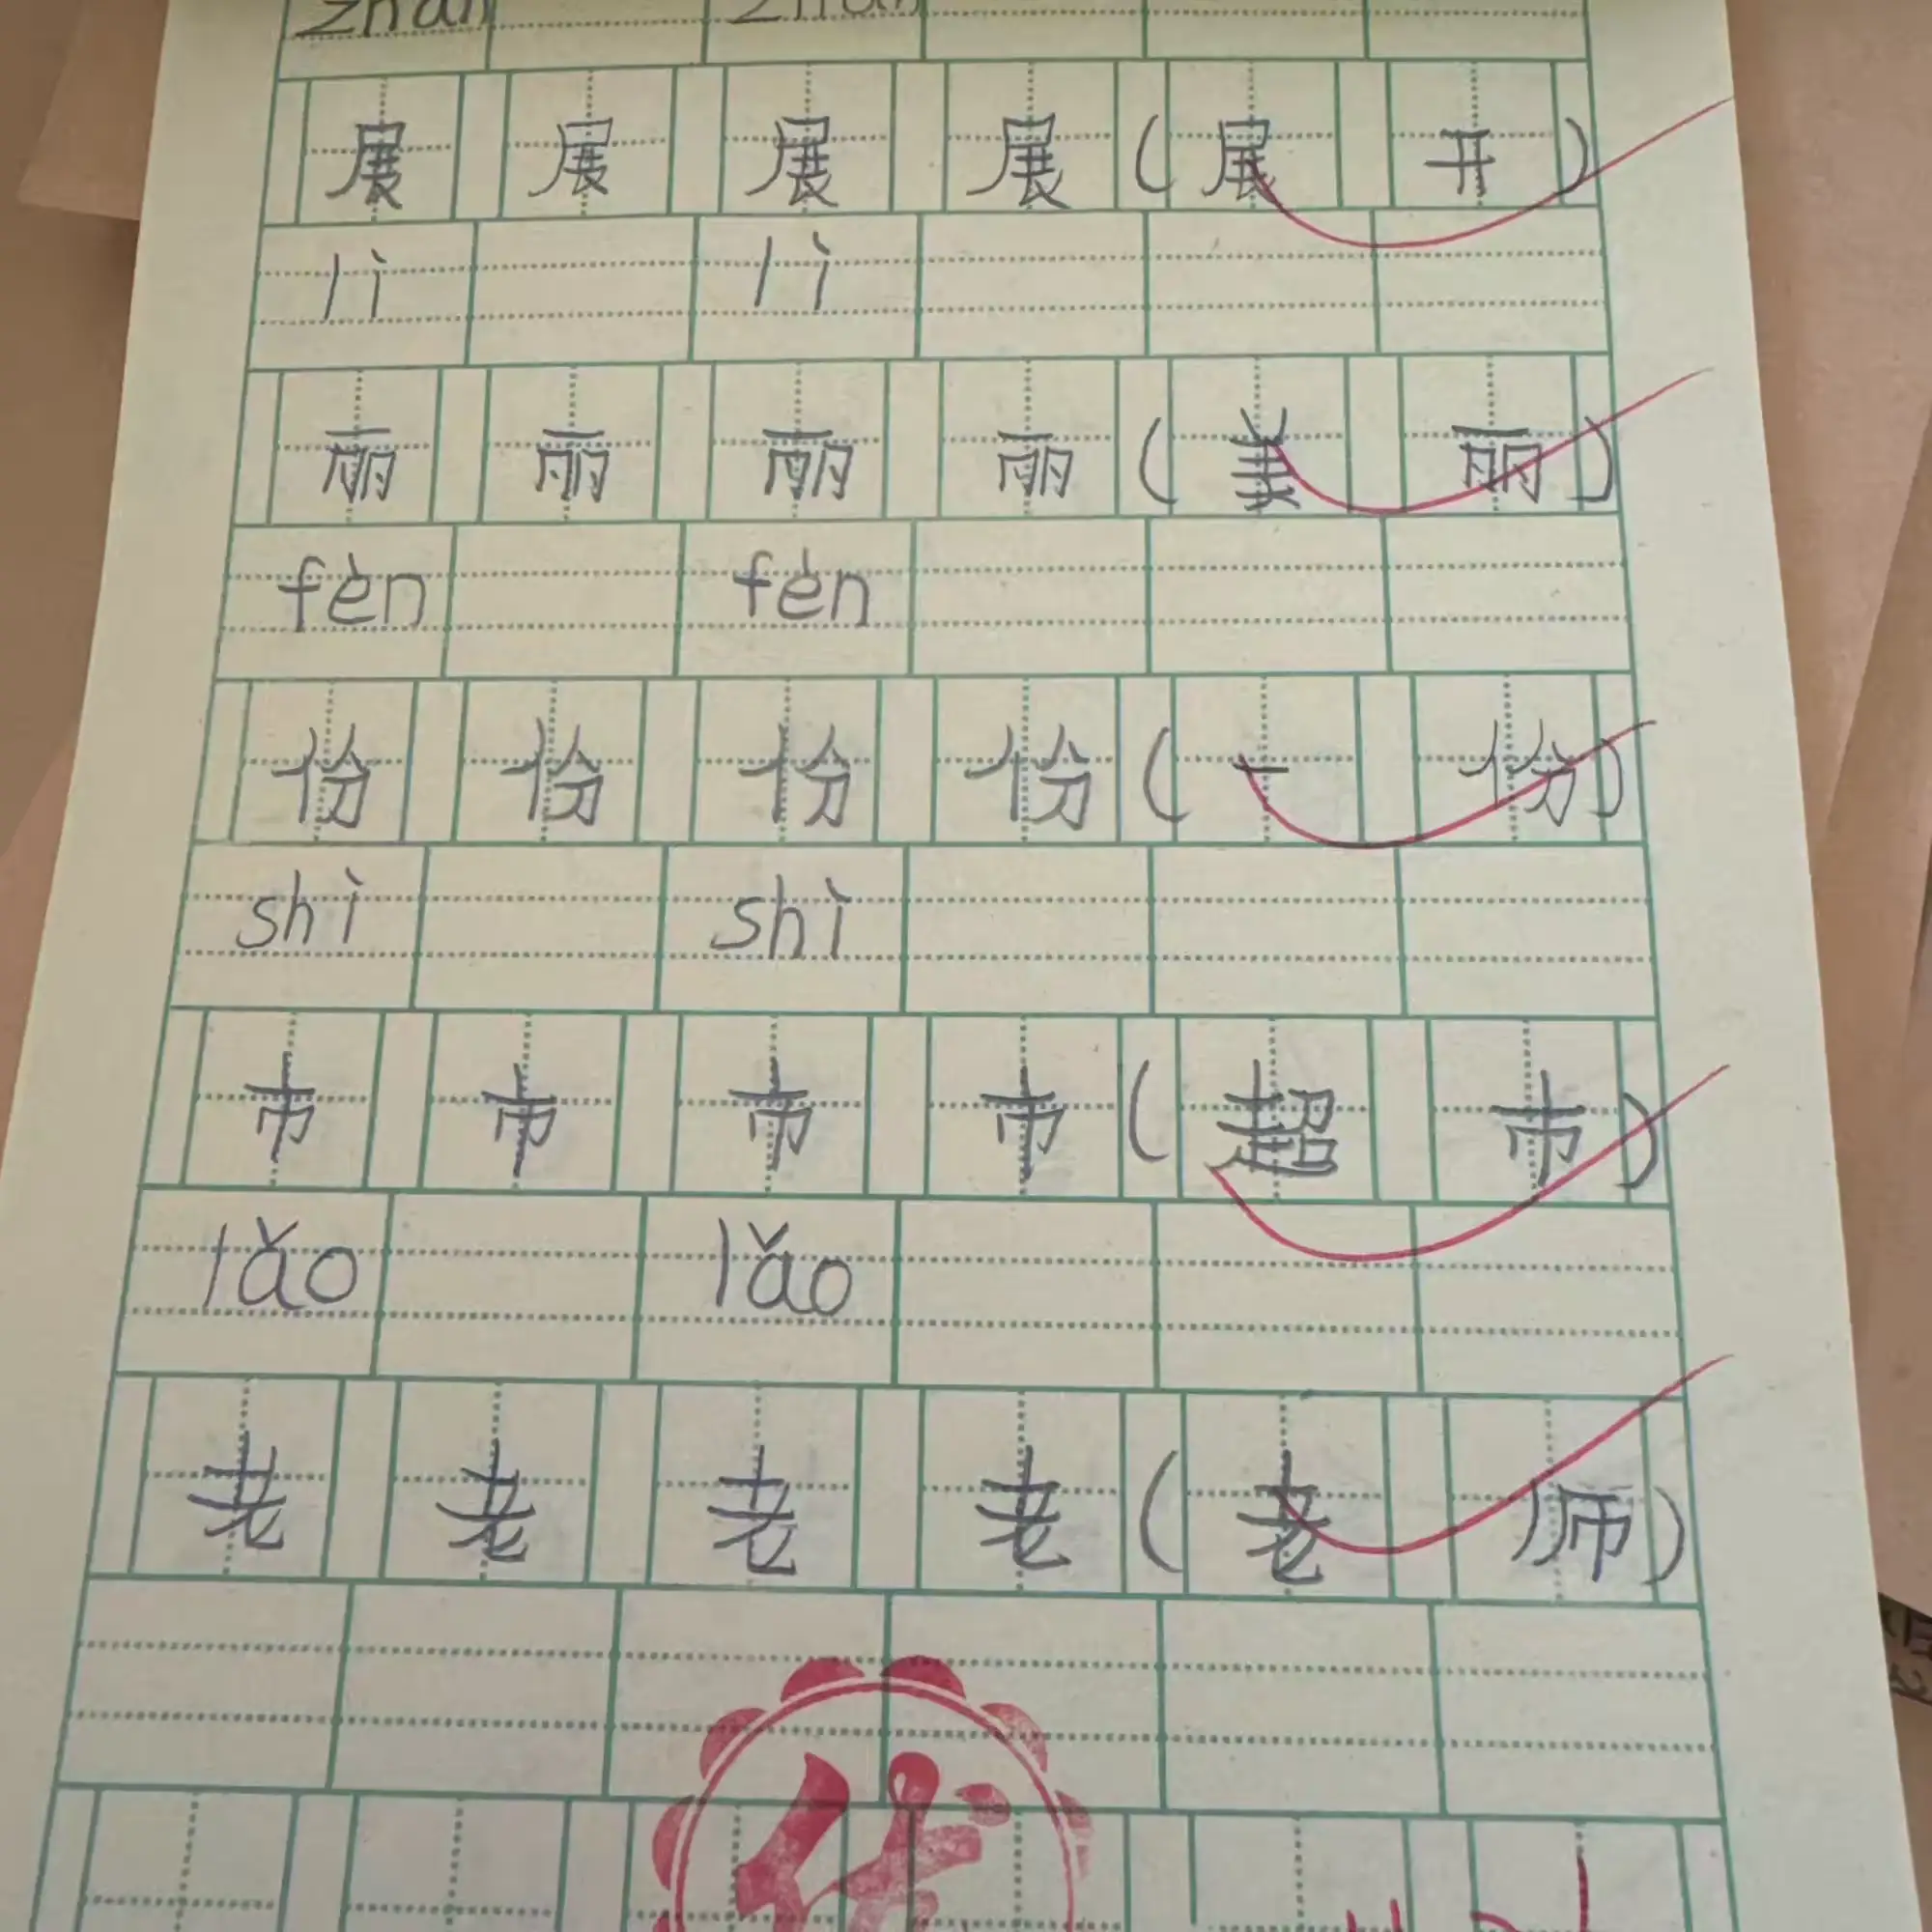 展 展 展 展 (展 开)
lì lì
丽 丽 丽 丽 (美 丽)
fèn fèn
份 份 份 份 (一 份)
shì shì
市 市 市 市 (超 市)
lǎo lǎo
老 老 老 老 (老 师)